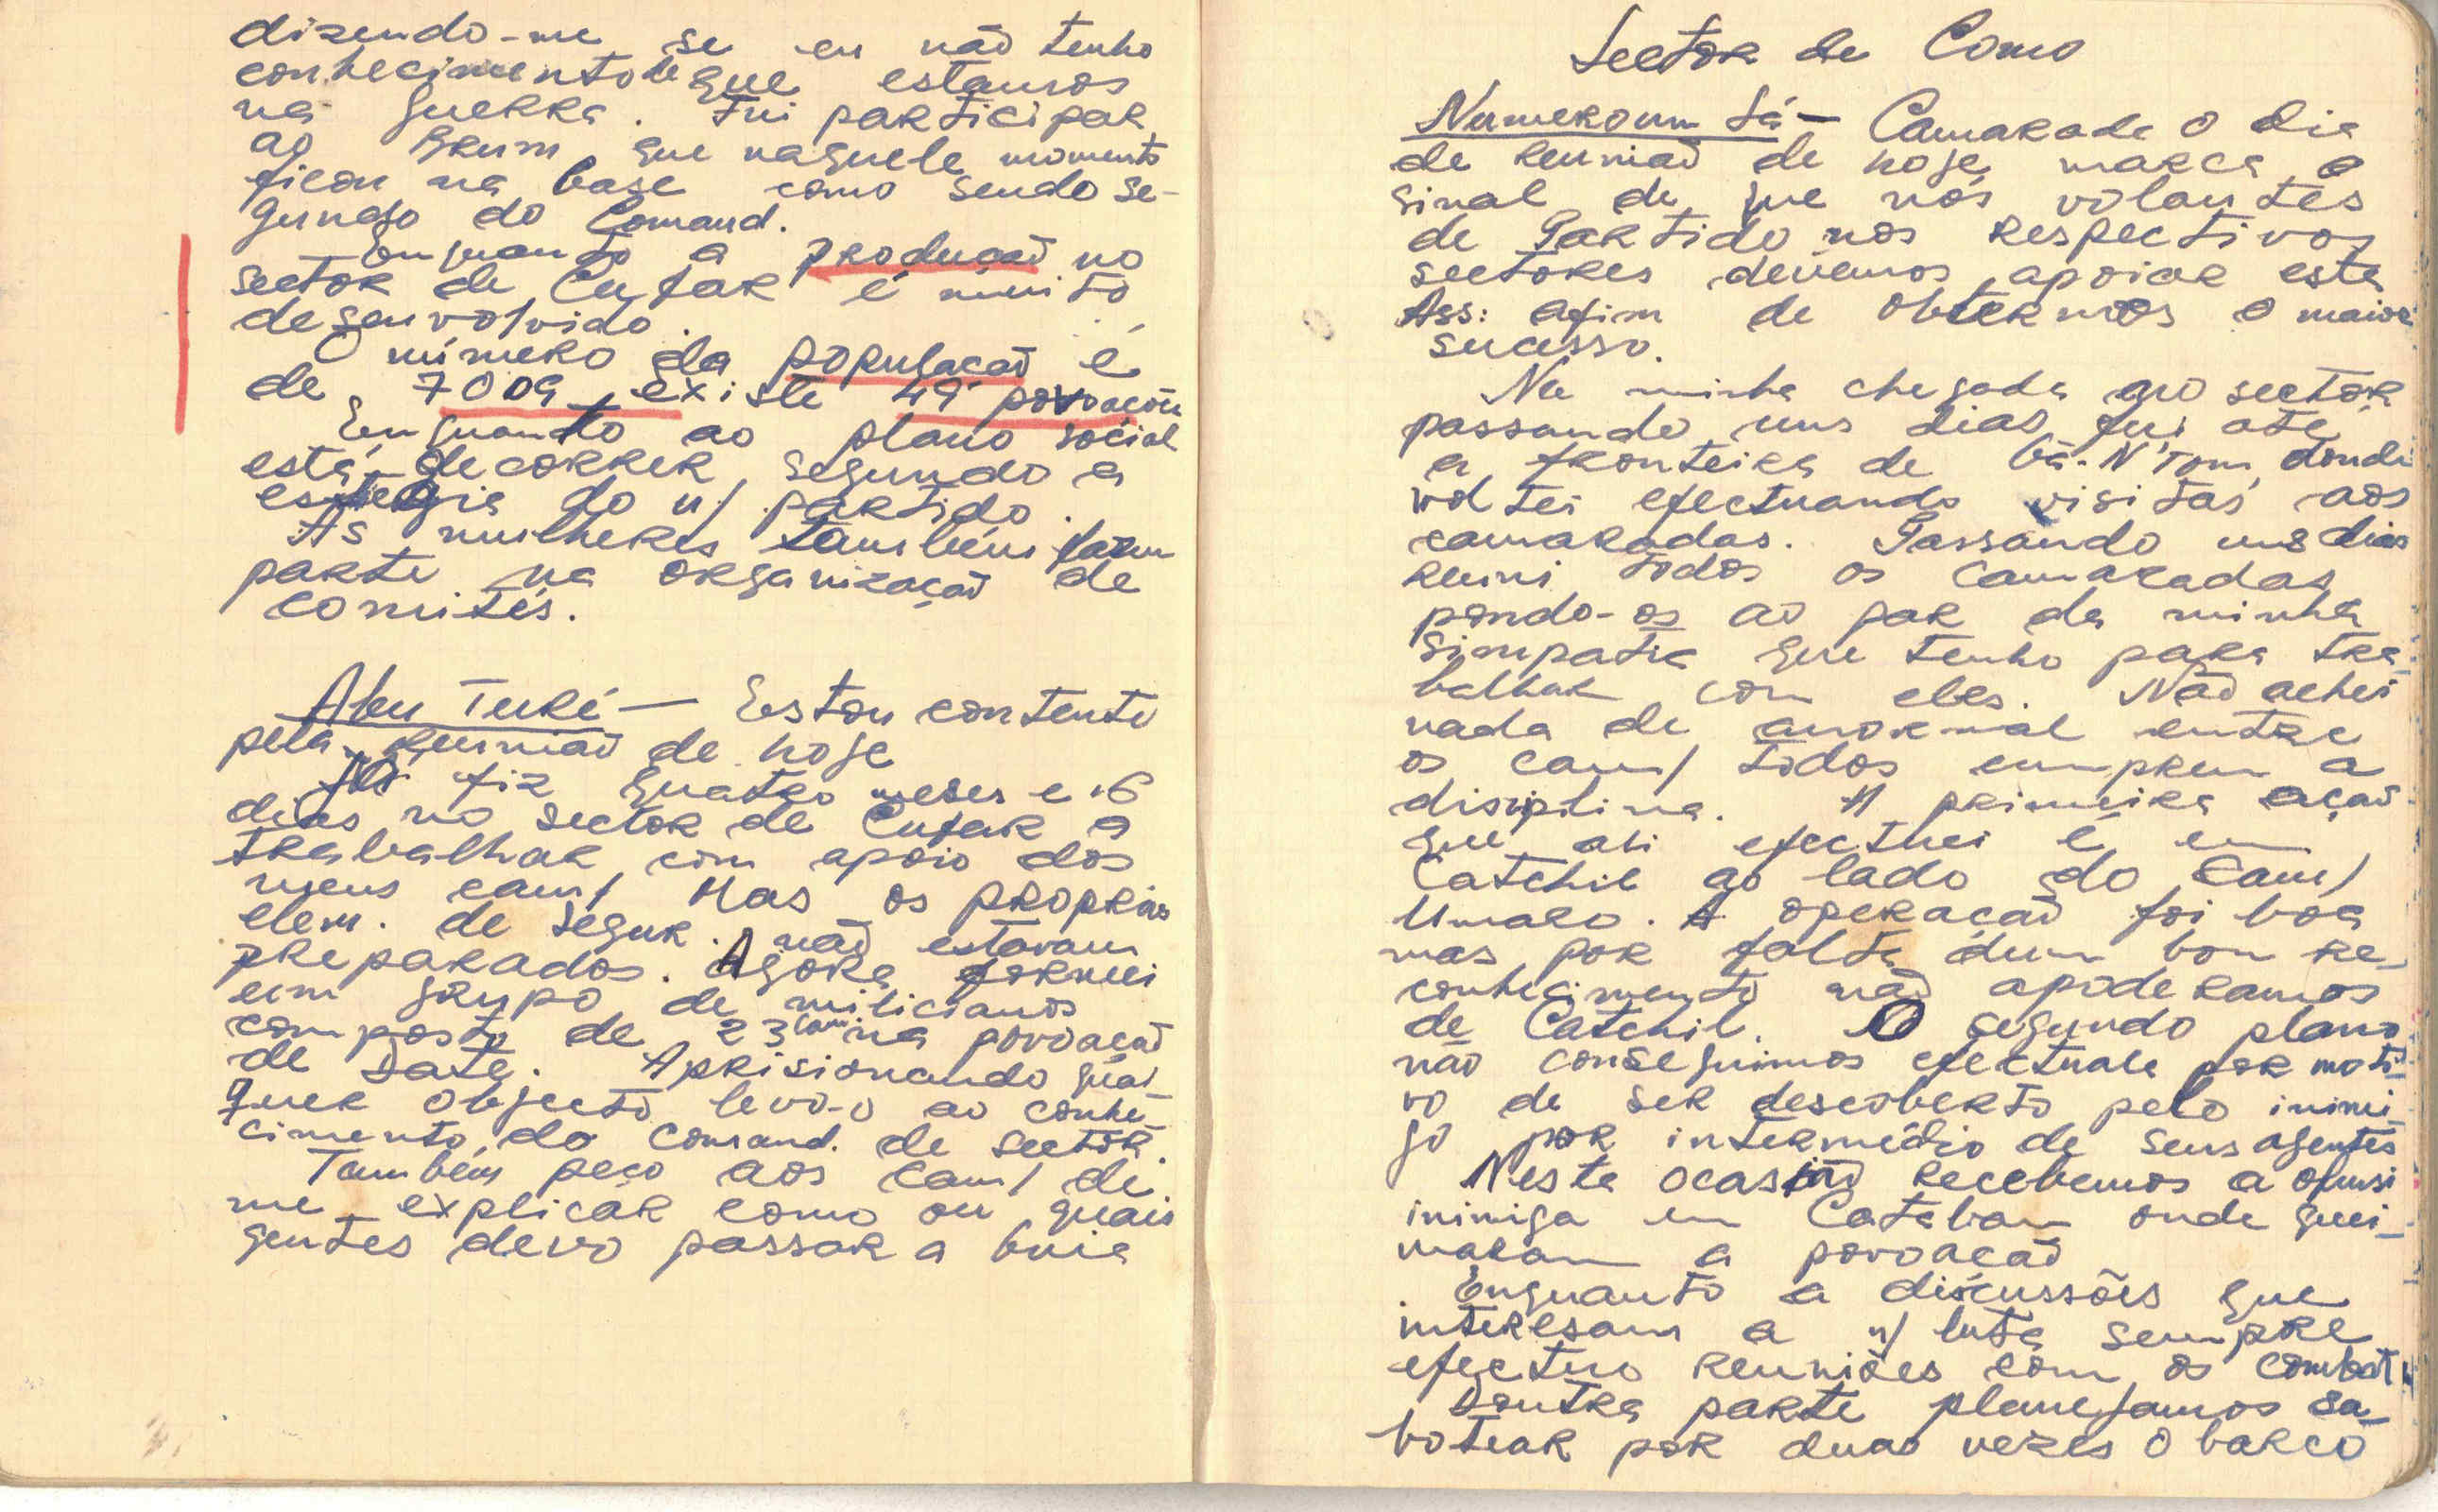 dizendo-me se eu não tenho
conhecimento de que estamos
na guerra. Fui participar
ao Brum que naquele momento
ficou na base como sendo se-
gundo do Comand.
Enquanto a produçaõ no
sector de Cufar é muito
desenvolvido.
O número da populaçaõ é
de 7009 existe 49 povoações
Enquanto ao plano social
está decorrer segundo a
do n/ partido.
As mulheres também fazem
parte na organizaçaõ de
comités.
Abu Turé — Estou contente
pela reuniaõ de hoje
Já fiz quatro meses e 16
dias no sector de Cufar a
trabalhar com apoio dos
meus cam/ Mas os proprios
elem. de segur. naõ estavam
preparados. Agora formei
um grupo de milicianos
composto de 23 cam. na povoaçaõ
de Date. Aprisionando qual-
quer objecto levo-o ao conhe-
cimento do Comand. de sector.
Também peço aos cam/ de
me explicar como ou quais
gentes devo passar a guia
Sector de Como
Numeroum Sá — Camarada O dia
de reuniaõ de hoje marca o
sinal de que nós volantes
de Partido nos respectivos
sectores devemos apoiar esta
Ass: afim de obtermos o maior
sucesso.
Na minha chegada ao sector
passando uns dias fui até
a fronteira de Cã-N'Tom, donde
voltei efectuando visitas aos
camaradas. Passando uns dias
reuni todos os camaradas
pondo-os ao par da minha
simpatia que tenho para tra-
balhar com eles. Naõ achei
nada de anormal entre
os cam/ todos cumprem a
disciplina. A primeira açaõ
que ali efectuei é em
Catchil ao lado do Cam/
Umaro. A operaçaõ foi boa
mas por falta dum bom re-
conhecimento naõ apoderamos
de Catchil. O segundo plano
não conseguimos efectuar por moti-
vo de ser descoberto pelo inimi-
go por intermédio de seus agentes
Nesta ocasiaõ recebemos a ofensi
inimiga em Catabam onde quei-
maram a povoaçaõ
Enquanto a discussões que
interesam a n/ luta sempre
efectuo reuniões com os combat
Doutra parte planejamos sa-
botear por duas vezes o barco